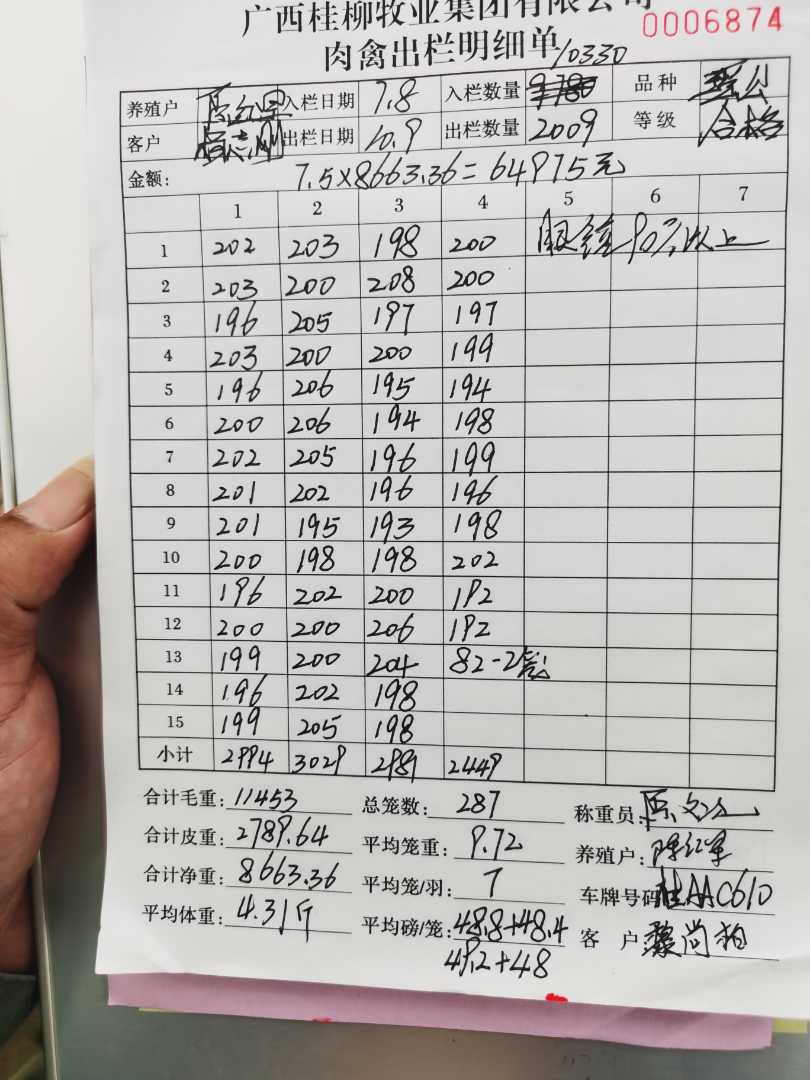 广西桂柳牧业集团有限公司
0006874
肉禽出栏明细单 10330
养殖户 入栏日期 7.8 入栏数量 品种
客户 出栏日期 10.9 出栏数量 2009 等级 合格
金额: 7.5×8663.36=64975元
1 2 3 4 5 6 7
1 202 203 198 200 90%以上
2 203 200 208 200
3 196 205 197 197
4 203 200 200 199
5 196 206 195 194
6 200 206 194 198
7 202 205 196 199
8 201 202 196 196
9 201 195 193 198
10 200 198 198 202
11 196 202 200 192
12 200 200 206 192
13 199 200 204 82-2笼
14 196 202 198
15 199 205 198
小计 2994 3029 2981 2449
合计毛重: 11453 总笼数: 287 称重员:
合计皮重: 2789.64 平均笼重: 9.72 养殖户: 陈红军
合计净重: 8663.36 平均笼/羽: 7 车牌号码 桂AAC610
平均体重: 4.31斤 平均磅/笼: 48.8+48.4 客户 黎尚柏
49.2+48